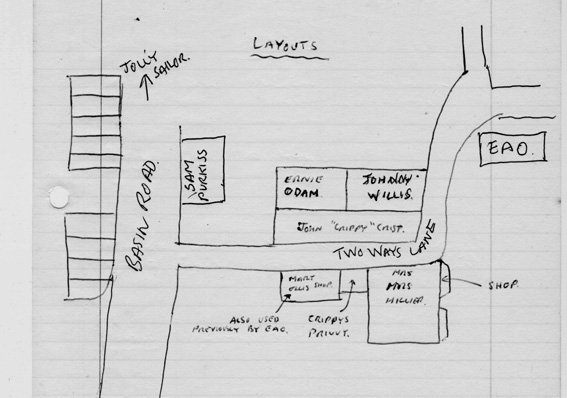 LAYOUTS
JOLLY
SAILOR.
EAO.
SAM
PURKISS
BASIN ROAD.
ERNIE
ODAM.
JOHNNY
WILLIS.
JOHN "CRIPPY" CRIST.
TWO WAYS LANE
MART
ELLIS SHOP.
MRS
HILLIER.
SHOP.
ALSO USED
PREVIOUSLY BY EAO.
CRIPPYS
PRIVVY.